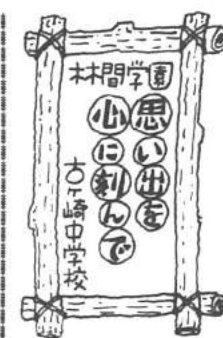 林間学園
思い出を
心に刻んで
古ヶ崎中学校